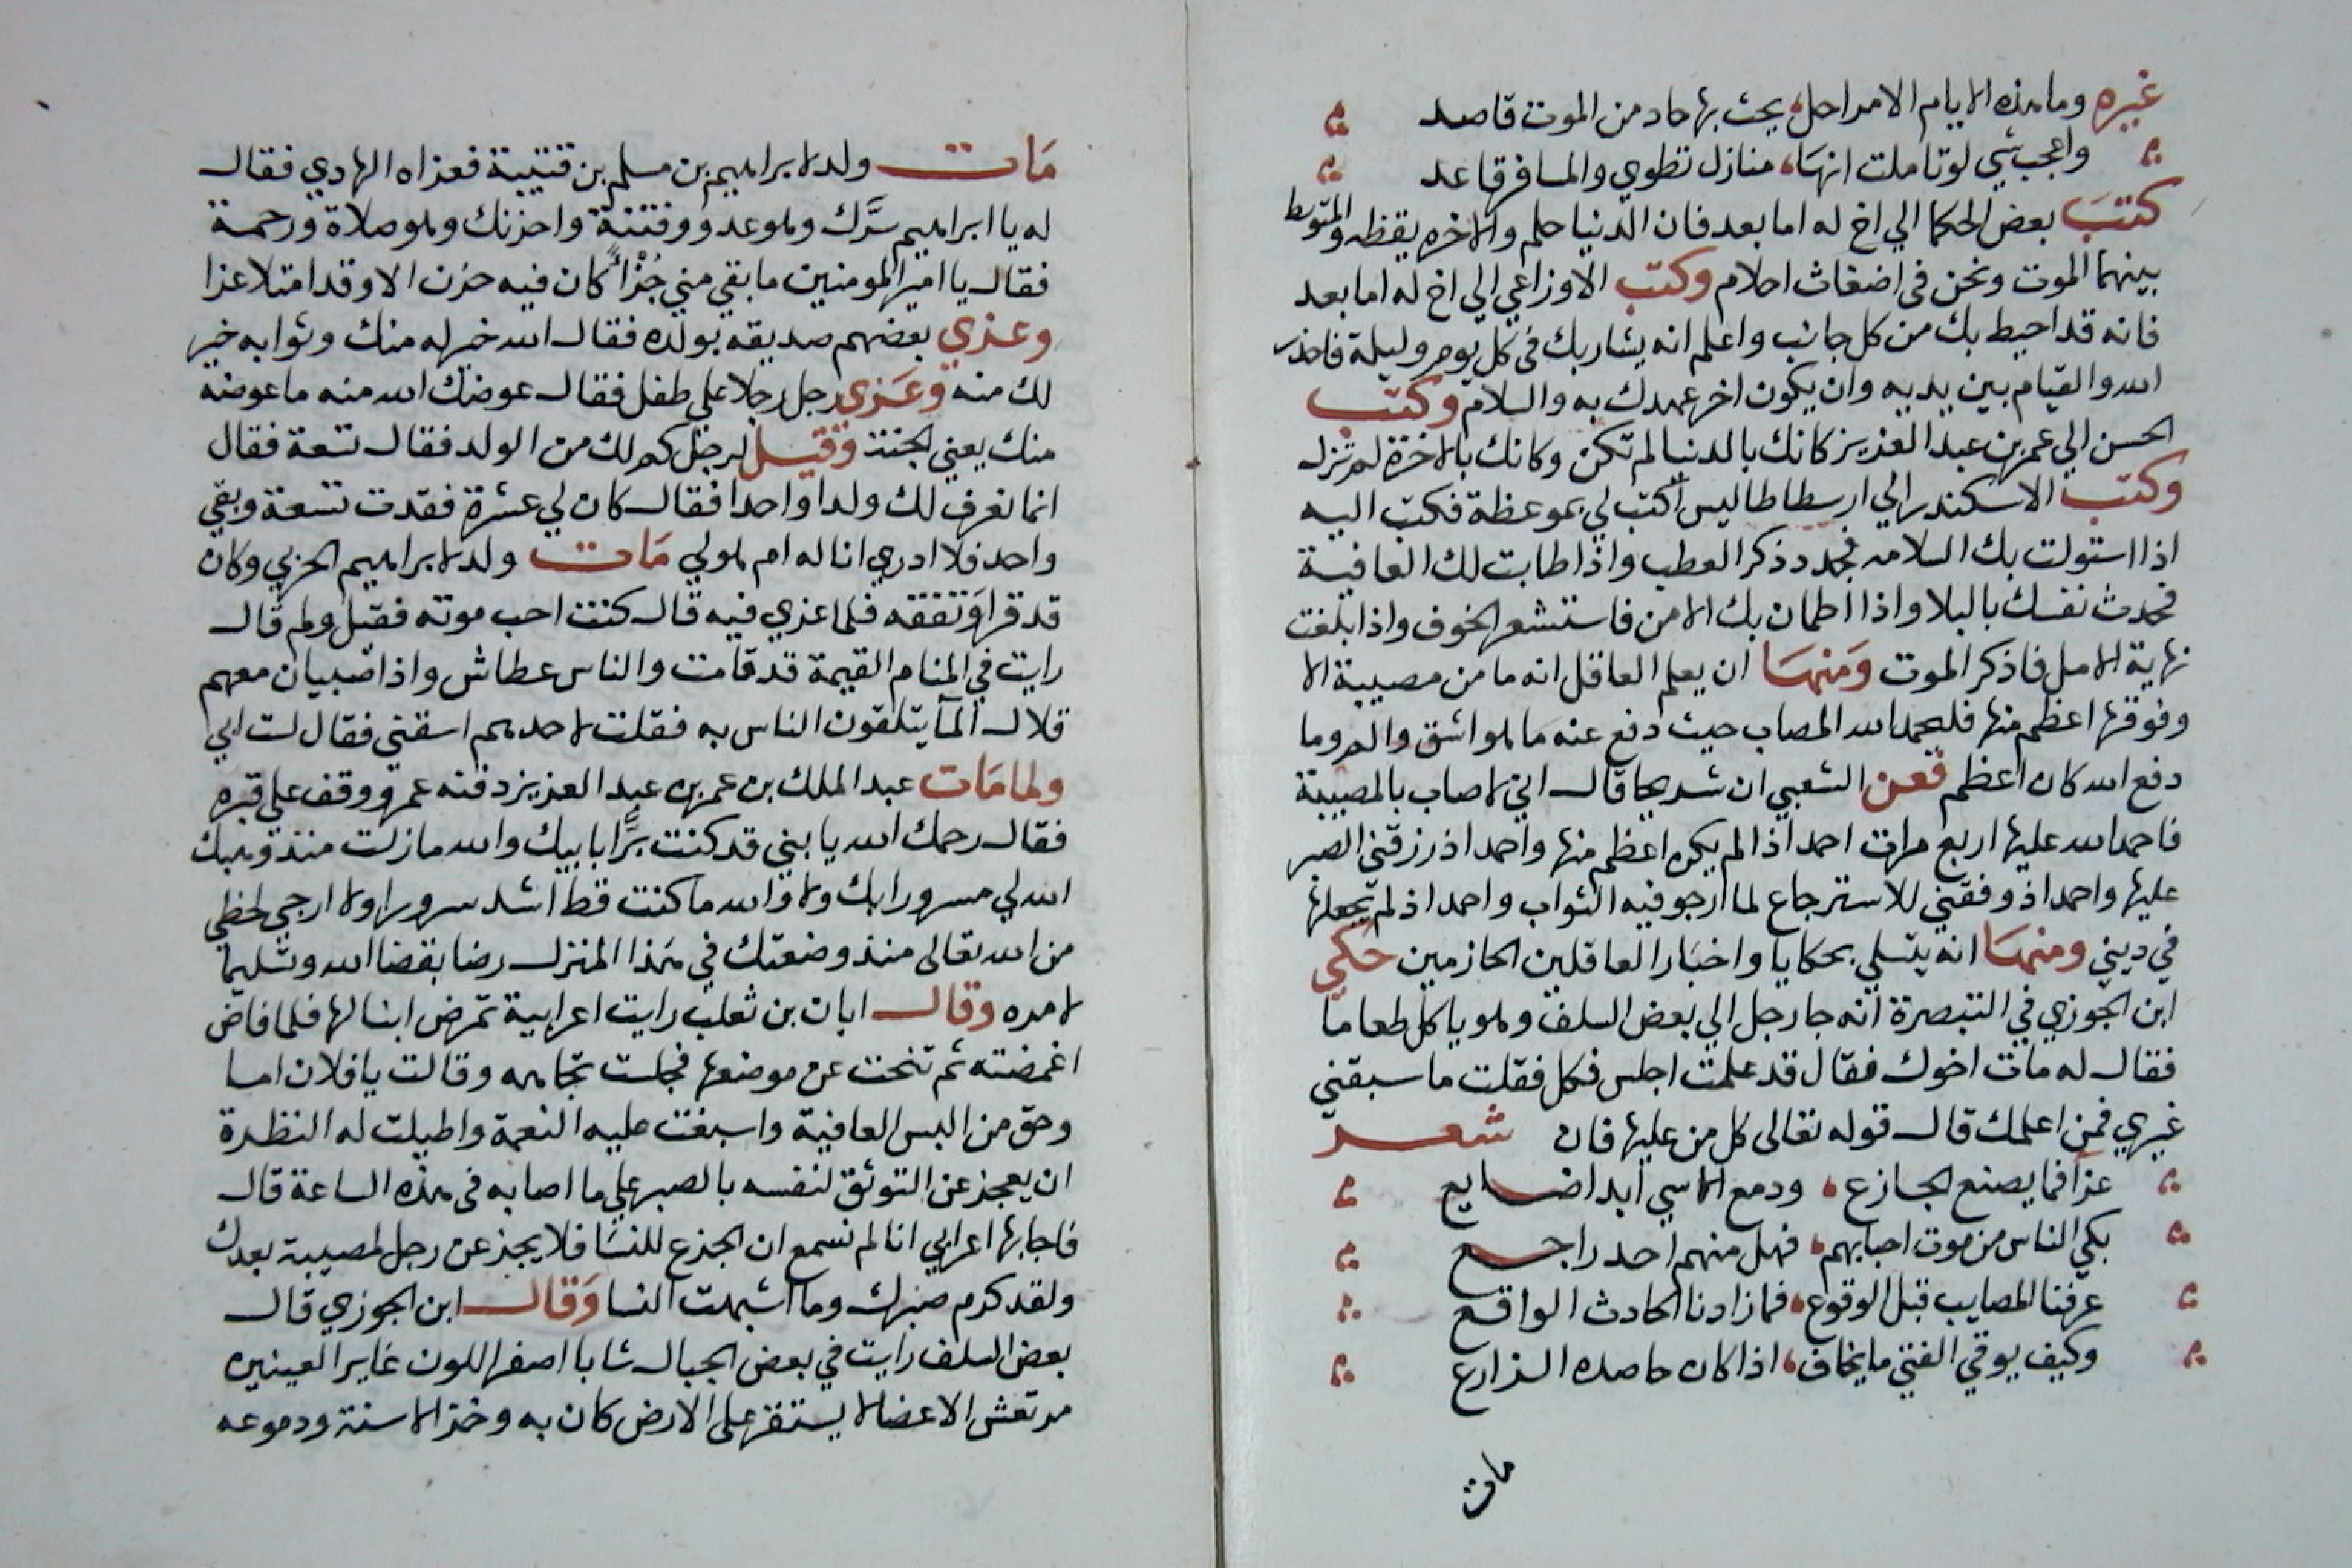 غيره وما هذه الايام الا مراحل يحث بها حاد من الموت قاصد
واعجب شي لو تاملت انها منازل تطوي والمسافر قاعد
كتب بعض الحكما الي اخ له اما بعد فان الدنيا حلم والاخره يقظه والمتوسط
بينهما الموت ونحن في اضغاث احلام وكتب الاوزاعي الي اخ له اما بعد
فانه قد احيط بك من كل جانب واعلم انه يشار بك في كل يوم وليلة فاحذر
الله والقيام بين يديه وان يكون اخر عهدك به والسلام وكتب
الحسن الي عمر بن عبد العزيز كانك بالدنيا لم تكن وكانك بالاخرة لم تزل
وكتب الاسكندر الي ارسطاطاليس اكتب لي بموعظة فكتب اليه
اذا استولت بك السلامه فجدد ذكر العطب واذا طابت لك العافية
فحدث نفسك بالبلا واذا اطمان بك الامن فاستشعر الخوف واذا بلغت
نهاية الامل فاذكر الموت ومنها ان يعلم العاقل انه ما من مصيبة الا
وفوقها اعظم منها فليحمد الله المصاب حيث دفع عنه ما هو اشق والمر وما
دفع الله كان اعظم فعن الشعبي ان شريحا قال اني لاصاب بالمصيبة
فاحمد الله عليها اربع مرات احمد اذ لم يكن اعظم منها واحمد اذ رزقني الصبر
عليها واحمد اذ وفقني للاسترجاع لما ارجو فيه الثواب واحمد اذ لم يجعلها
في ديني ومنها انه يتسلي بحكايا واخبار العاقلين الحازمين حكي
ابن الجوزي في التبصرة انه جا رجل الي بعض السلف وهو ياكل طعاما
فقال له مات اخوك فقال قد علمت اجلس فكل فقلت ما سبقني
غيري فمن اعلمك قال قوله تعالى كل من عليها فان شعر
عزا فما يصنع الجازع ودمع الاسي ابدا ضايع
بكي الناس من موت احبابهم فهل منهم احد راجع
عرفنا المصايب قبل الوقوع فما زادنا الحادث الواقع
وكيف يوقي الفتي ما يخاف اذا كان حاصده الزارع
مات
مات ولد لابراهيم بن مسلم بن قتيبة فعزاه الهادي فقال
له يا ابراهيم سرَّك وهو عدو وفتنة واحزنك وهو صلاة ورحمة
فقال يا امير المومنين ما بقي مني جُزْاً كان فيه حزن الا وقد امتلا عزا
وعزي بعضهم صديقه بولده فقال الله خير له منك وثوابه خير
لك منه وعزي رجل رجلا على طفل فقال عوضك الله منه ما عوضه
منك يعني الجنة وقيل لرجل كم لك من الولد فقال تسعة فقال
انما نعرف لك ولدا واحدا فقال كان لي عشرة فقدت تسعة وبقي
واحد فلا ادري انا له ام هو لي مات ولد لابراهيم الحربي وكان
قد قرا وتفقه فلما عزي فيه قال كنت احب موته فقيل ولم قال
رايت في المنام القيمة قد قامت والناس عطاش واذا صبيان معهم
قلال الما يتلقون الناس به فقلت لاحدهم اسقني فقال لست ابي
ولما مات عبد الملك بن عمر بن عبد العزيز دفنه عمر ووقف على قبره
فقال رحمك الله يا بني قد كنت برًّا بابيك والله ما زلت منذ وهبك
الله لي مسرورا بك ولا والله ما كنت قط اشد سرورا ولا ارجي لحظي
من الله تعالى منذ وضعتك في هذا المنزل رضا بقضا الله وتسليما
لامره وقال ابان بن ثعلب رايت اعرابية تمرض ابنا لها فلما فاض
اغمضته ثم تنحت عن موضعها فجلست تجاهه وقالت يا فلان اما
وحق من البس العافية واسبغت عليه النعمة واطيلت له النظرة
ان يعجز عن التوثق لنفسه بالصبر علي ما اصابه في هذه الساعة قال
فاجابها اعرابي انا لم نسمع ان الجزع للنسا فلا يجزعن رجل لمصيبة بعدك
ولقد كرم صبرك وما اشبهت النسا وقال ابن الجوزي قال
بعض السلف رايت في بعض الجبال شابا اصفر اللون غاير العينين
مرتعش الاعضا لا يستقر على الارض كان به وخز الاسنة ودموعه